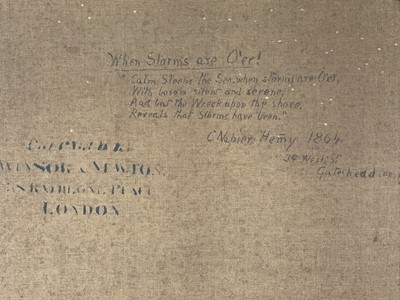 When Storms are O'er!
"Calm Steeps the Sea when storms are O'er,
With bosom silent and serene,
And but the Wreck upon the shore,
Reveals that Storms have been."
C Napier Hemy 1864
West St
Gateshead on
WINSOR & NEWTON
RATHBONE PLACE
LONDON